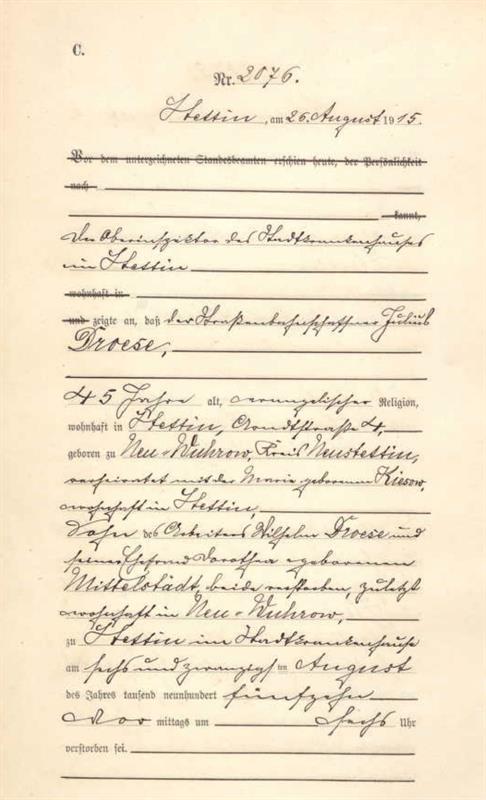 C.
Nr. 2076.
Stettin, am 26. August 1915.
Vor dem unterzeichneten Standesbeamten erschien heute, der Persönlichkeit
nach
kannt,
Der Oberinspektor des Stadtkrankenhauses
in Stettin
wohnhaft in
und zeigte an, daß der Straßenbahnschaffner Julius
Droese,
45 Jahre alt, evangelischer Religion,
wohnhaft in Stettin, Arndtstraße 4,
geboren zu Neu-Wuhrow, Kreis Neustettin,
verheiratet mit der Marie geborenen Kiesow,
wohnhaft in Stettin,
Sohn des Arbeiters Wilhelm Droese und
seiner Ehefrau Dorothea geborenen
Mittelstädt, beide verstorben, zuletzt
wohnhaft in Neu-Wuhrow,
zu Stettin im Stadtkrankenhause
am sechs und zwanzigsten August
des Jahres tausend neunhundert fünfzehn
Vor mittags um sechs Uhr
verstorben sei.